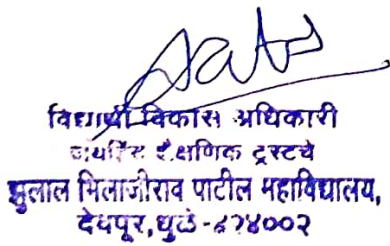 विद्यार्थी विकास अधिकारी
जयहिंद शैक्षणिक ट्रस्टचे
झुलाल भिलाजीराव पाटील महाविद्यालय,
देवपूर, धुळे -४२४००२